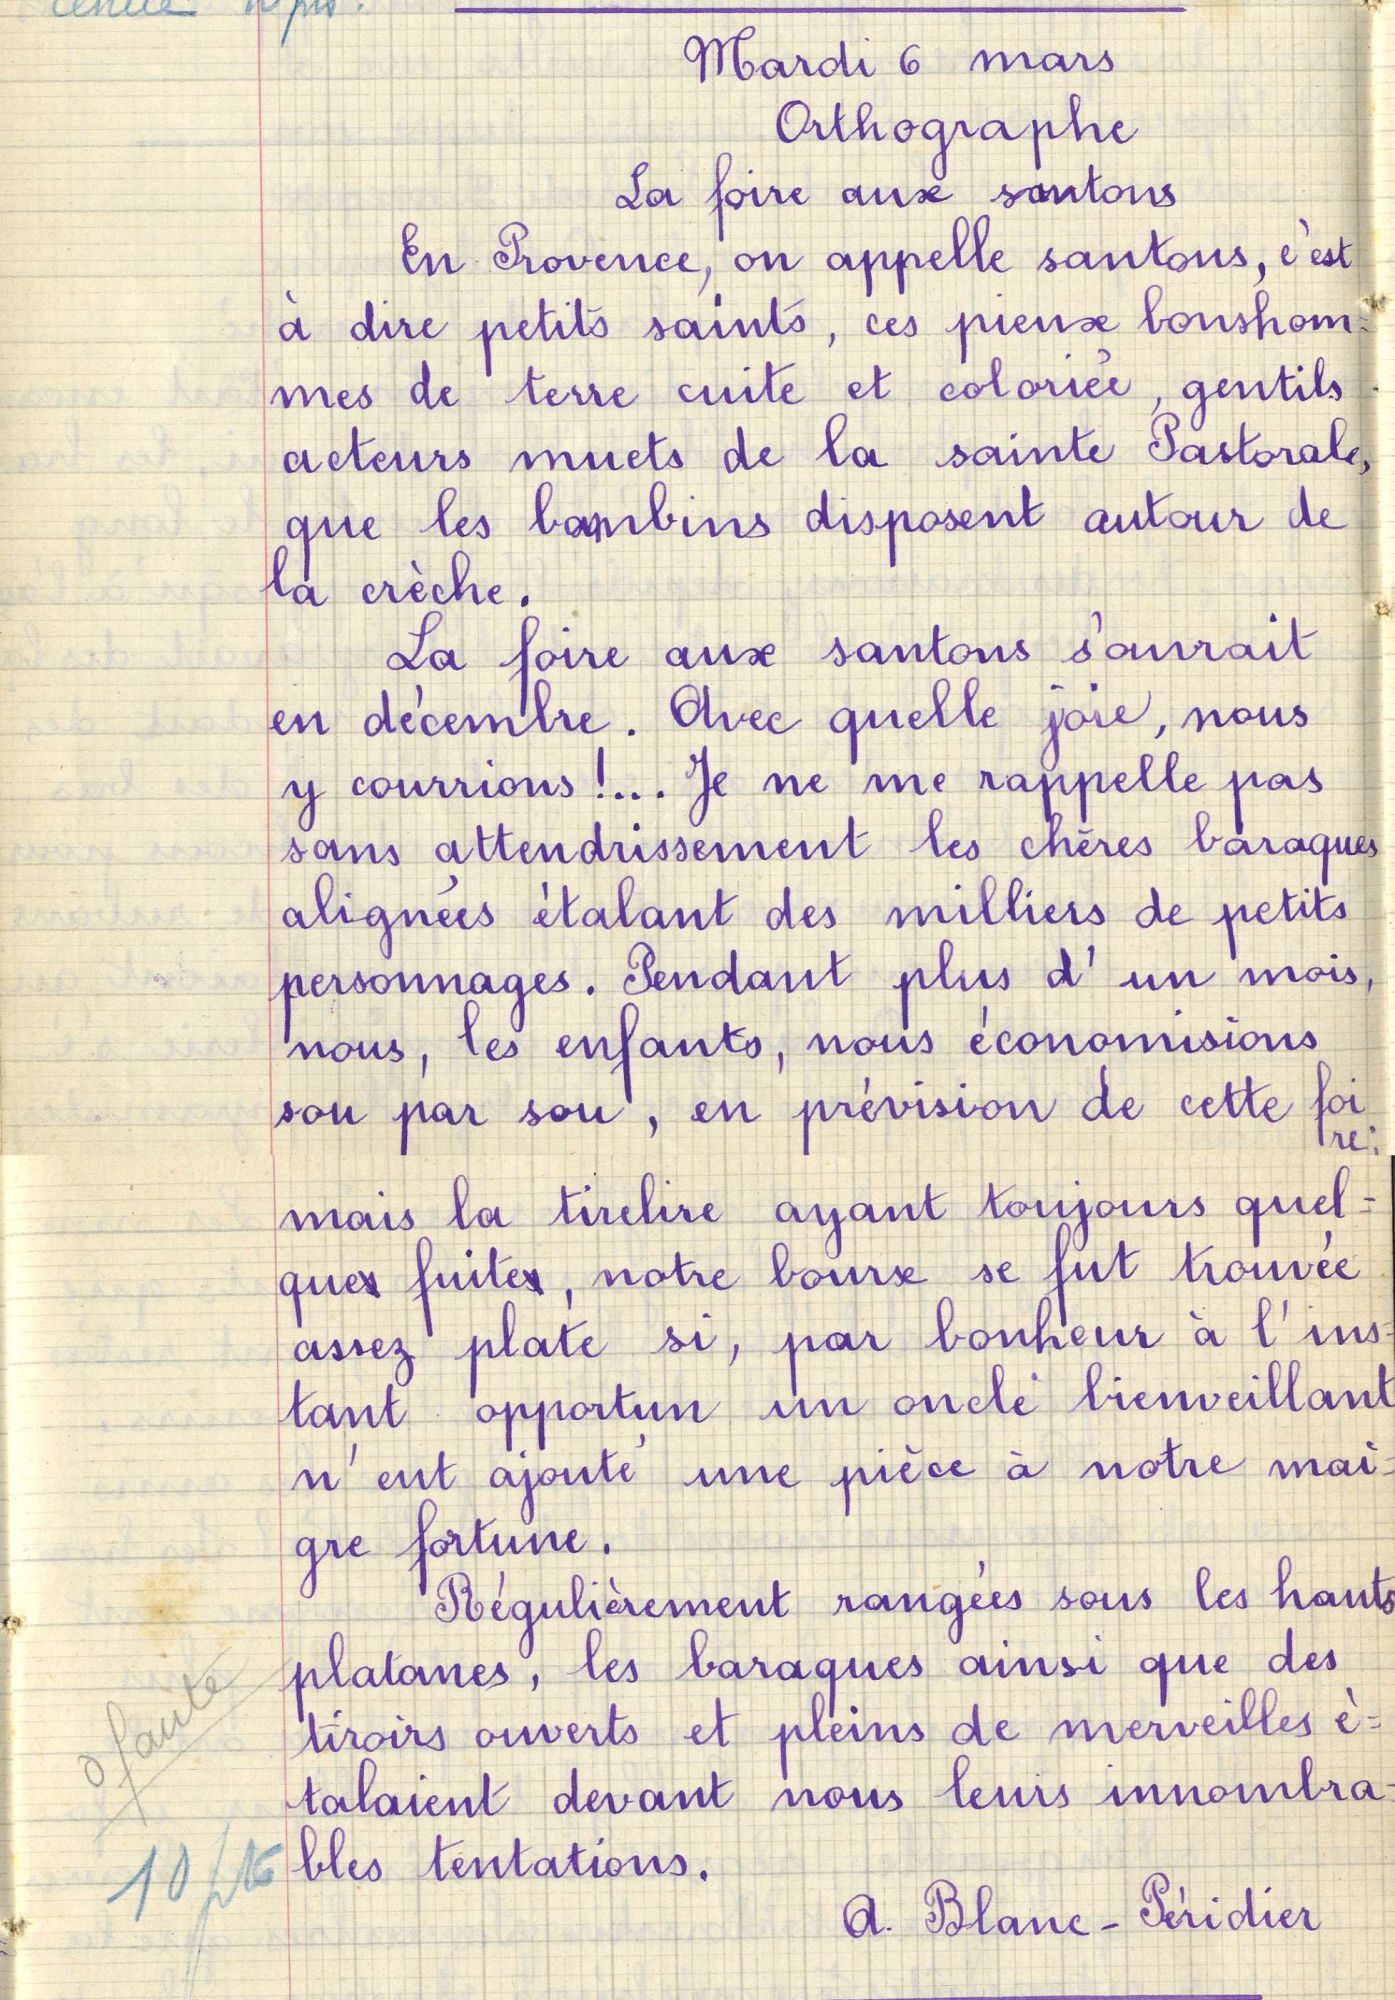 Mardi 6 mars
Orthographe
La foire aux santons
En Provence, on appelle santons, c'est
à dire petits saints, ces pieux bonshom-
mes de terre cuite et coloriée, gentils
acteurs muets de la sainte Pastorale,
que les bambins disposent autour de
la crèche.
La foire aux santons s'ouvrait
en décembre. Avec quelle joie, nous
y courrions !... Je ne me rappelle pas
sans attendrissement les chères baraques
alignées étalant des milliers de petits
personnages. Pendant plus d'un mois,
nous, les enfants, nous économisions
sou par sou, en prévision de cette foi
re;
mais la tirelire ayant toujours quel-
ques fuites, notre bourse se fut trouvée
assez plate si, par bonheur à l'ins-
tant opportun un oncle bienveillant
n'eut ajouté une pièce à notre mai-
gre fortune.
Régulièrement rangées sous les hauts
platanes, les baraques ainsi que des
tiroirs ouverts et pleins de merveilles é-
talaient devant nous leurs innombra-
bles tentations.
A. Blanc-Péridier
0 faute
10 pts